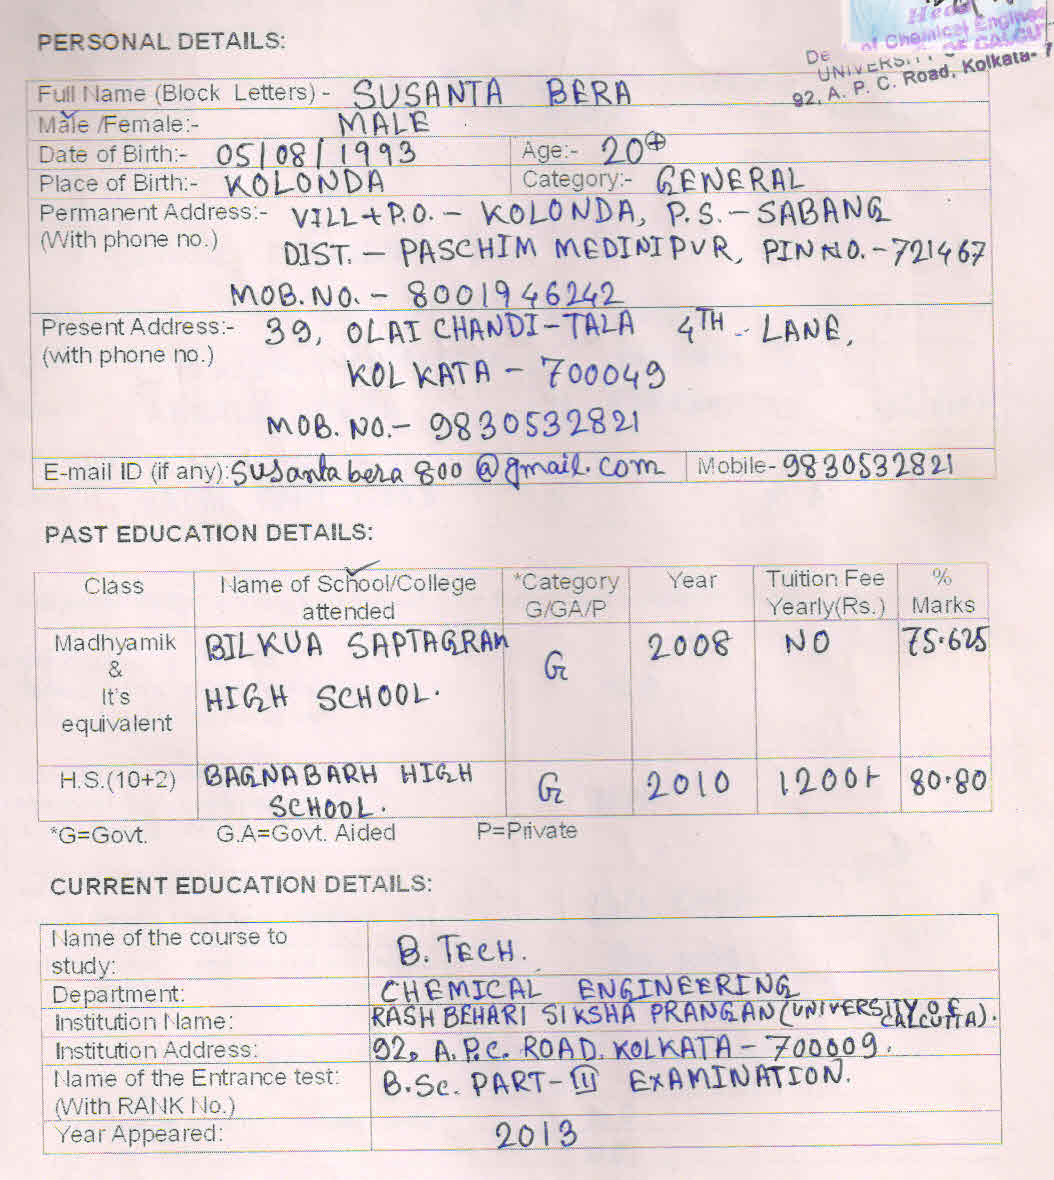 Head
of Chemical Enginee
UNIVERSITY OF CALCUT
92, A. P. C. Road, Kolkata-
PERSONAL DETAILS:
Full Name (Block Letters) - SUSANTA BERA
Male /Female:- MALE
Date of Birth:- 05/08/1993 Age:- 20+
Place of Birth:- KOLONDA Category:- GENERAL
Permanent Address:- VILL+P.O. - KOLONDA, P.S. - SABANG
(With phone no.) DIST. - PASCHIM MEDINIPUR, PIN NO. - 721467
MOB. NO. - 8001946242
Present Address:- 39, OLAI CHANDI-TALA 4TH - LANE,
(with phone no.) KOLKATA - 700049
MOB. NO. - 9830532821
E-mail ID (if any): susantabera800@gmail.com Mobile- 9830532821
PAST EDUCATION DETAILS:
Class Name of School/College *Category Year Tuition Fee %
attended G/GA/P Yearly(Rs.) Marks
Madhyamik BILKUA SAPTAGRAM G 2008 NO 75.625
&
It's HIGH SCHOOL.
equivalent
H.S.(10+2) BAGNABARH HIGH G 2010 1200/- 80.80
SCHOOL.
*G=Govt. G.A=Govt. Aided P=Private
CURRENT EDUCATION DETAILS:
Name of the course to
study: B. TECH.
Department: CHEMICAL ENGINEERING
Institution Name: RASHBEHARI SIKSHA PRANGAN (UNIVERSITY OF CALCUTTA).
Institution Address: 92, A.P.C. ROAD, KOLKATA - 700009.
Name of the Entrance test: B.Sc. PART-III EXAMINATION.
(With RANK No.)
Year Appeared: 2013